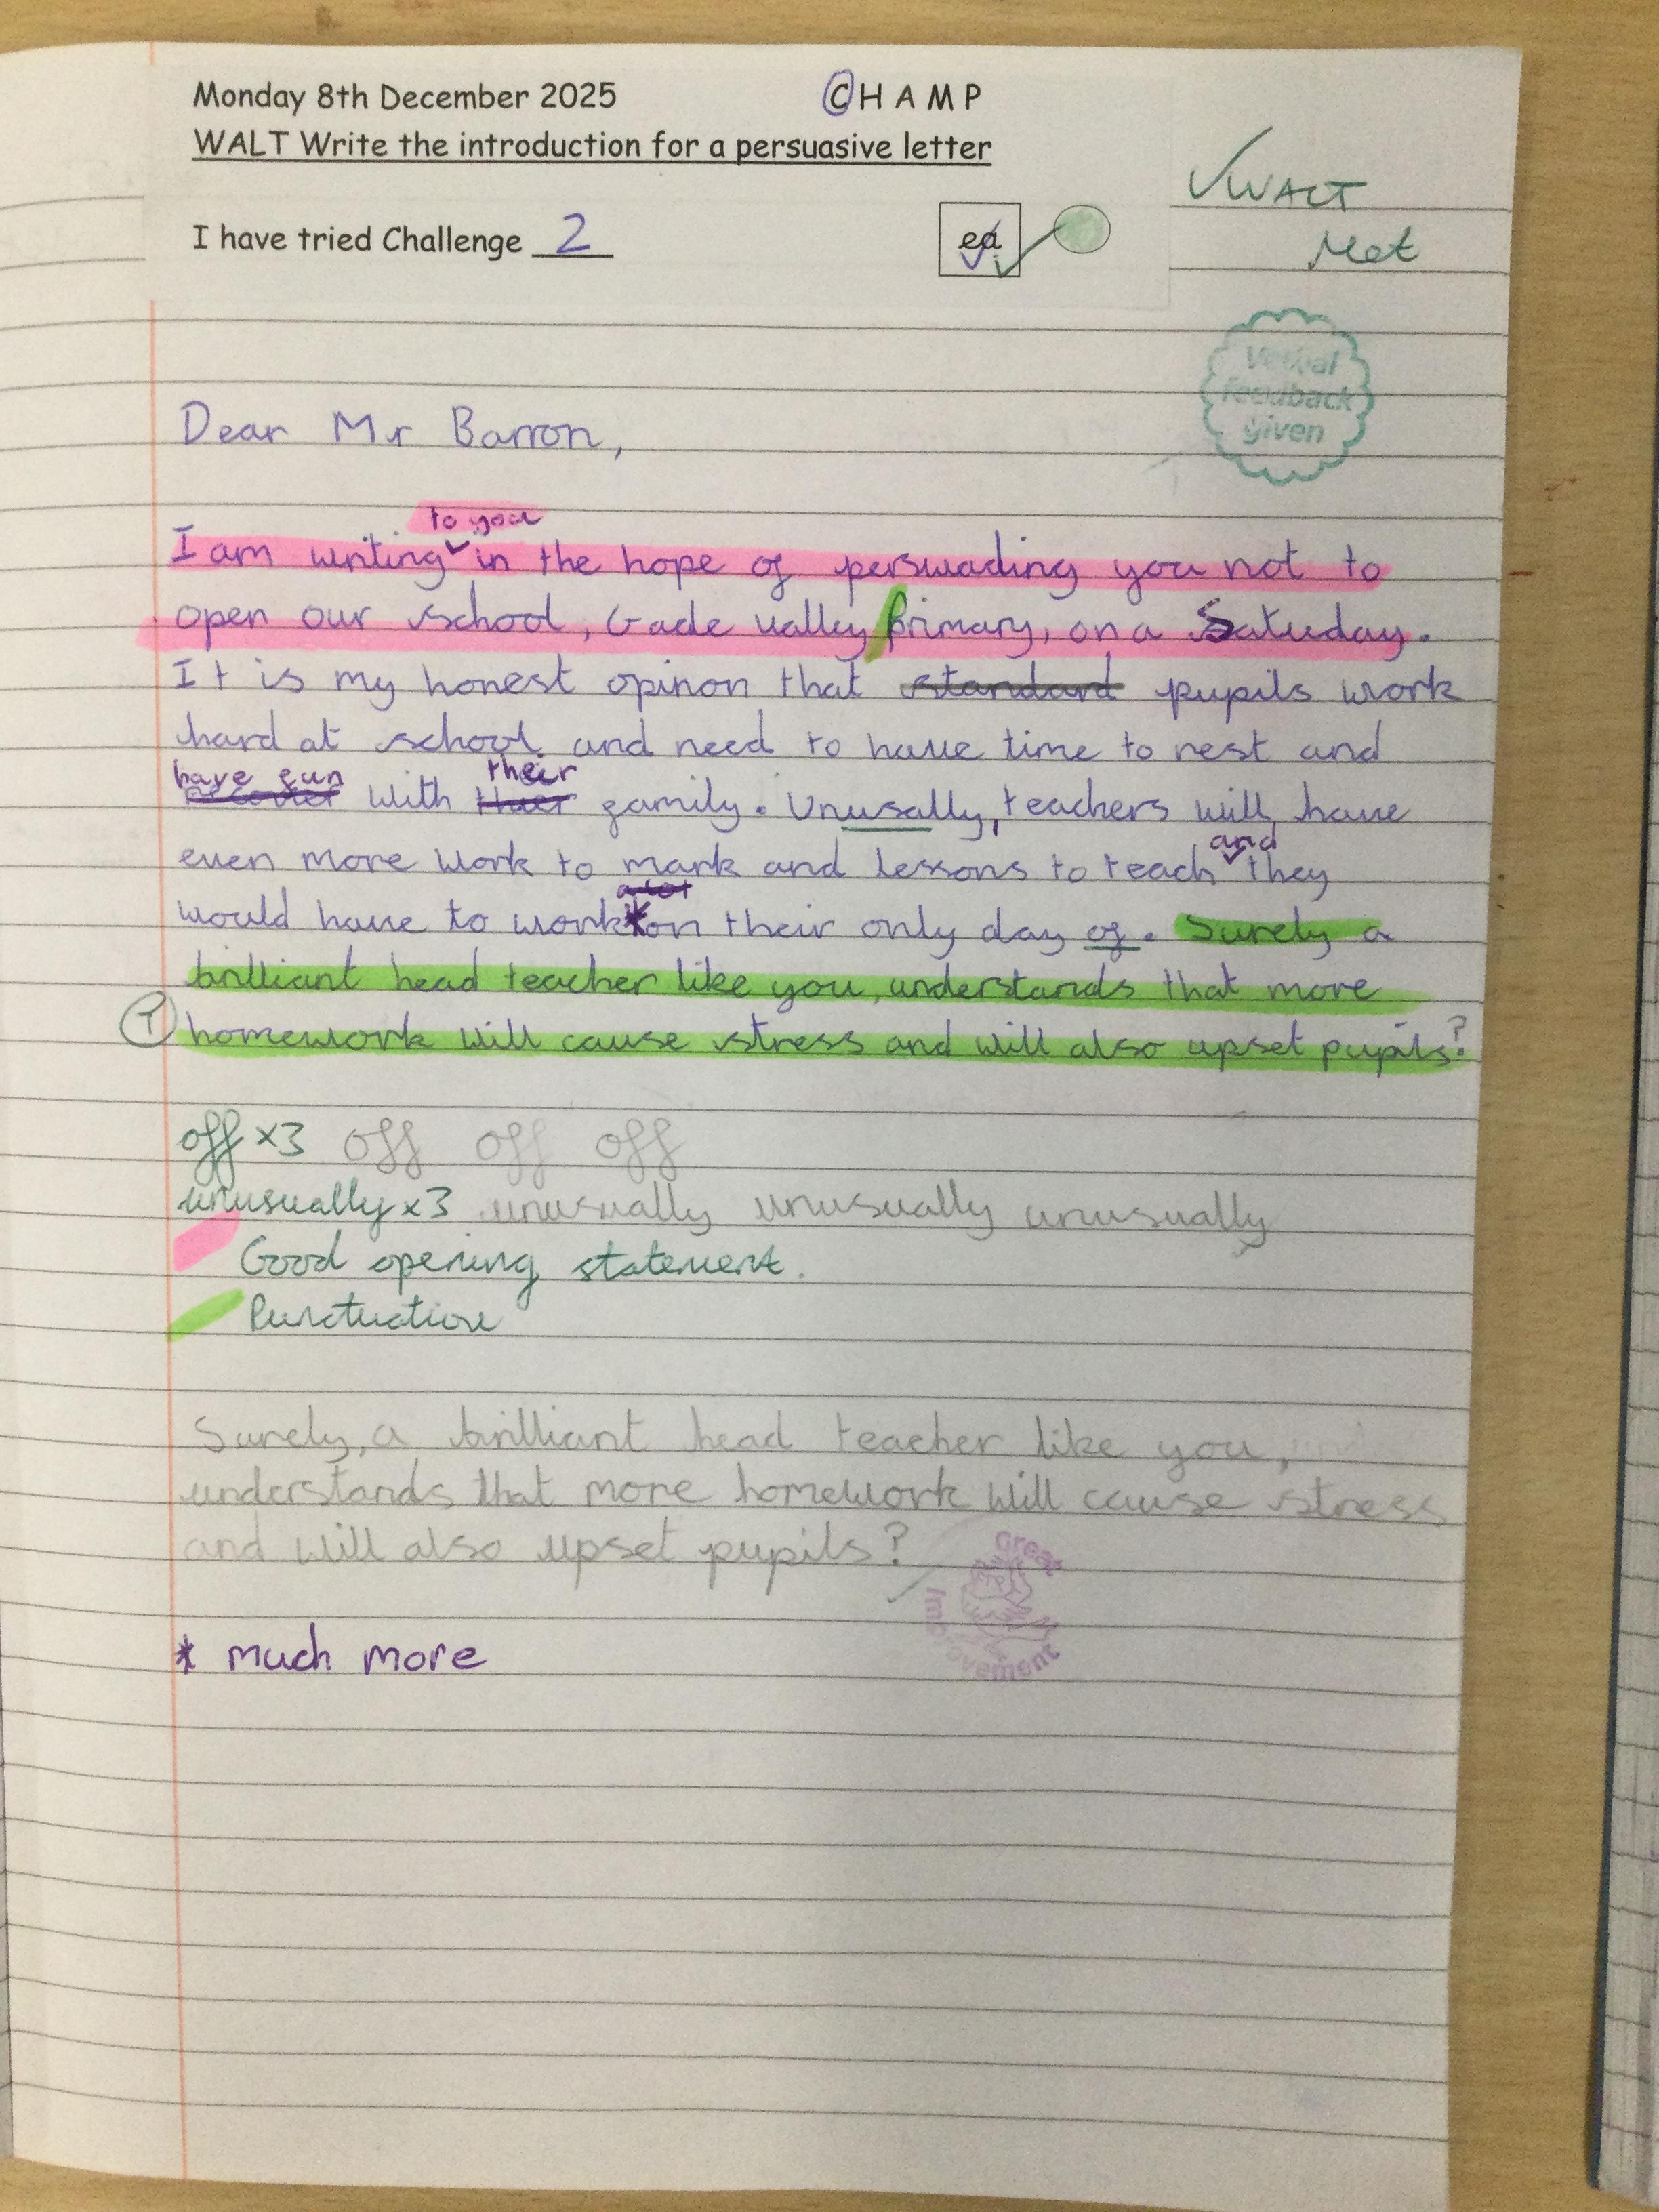 Monday 8th December 2025
C H A M P
WALT Write the introduction for a persuasive letter
I have tried Challenge 2
ea
WALT
Met
Verbal
feedback
given
Dear Mr Barron,
to you
I am writing in the hope of perswading you not to
open our school, Gade valley primary, on a Satuday.
It is my honest opinon that standard pupils work
hard at school and need to have time to rest and
have fun their
with thier family. Unusally, teachers will have
and
even more work to mark and lessons to teach they
a lot
would have to work * on their only day of. Surely a
brilliant head teacher like you, understands that more
T homework will cause stress and will also upset pupils?
off x3 off off off
unusually x3 unusually unusually unusually
Good opening statement.
Punctuation
Surely, a brilliant head teacher like you,
understands that more homework will cause stress
and will also upset pupils?
Great
Improvement
* much more